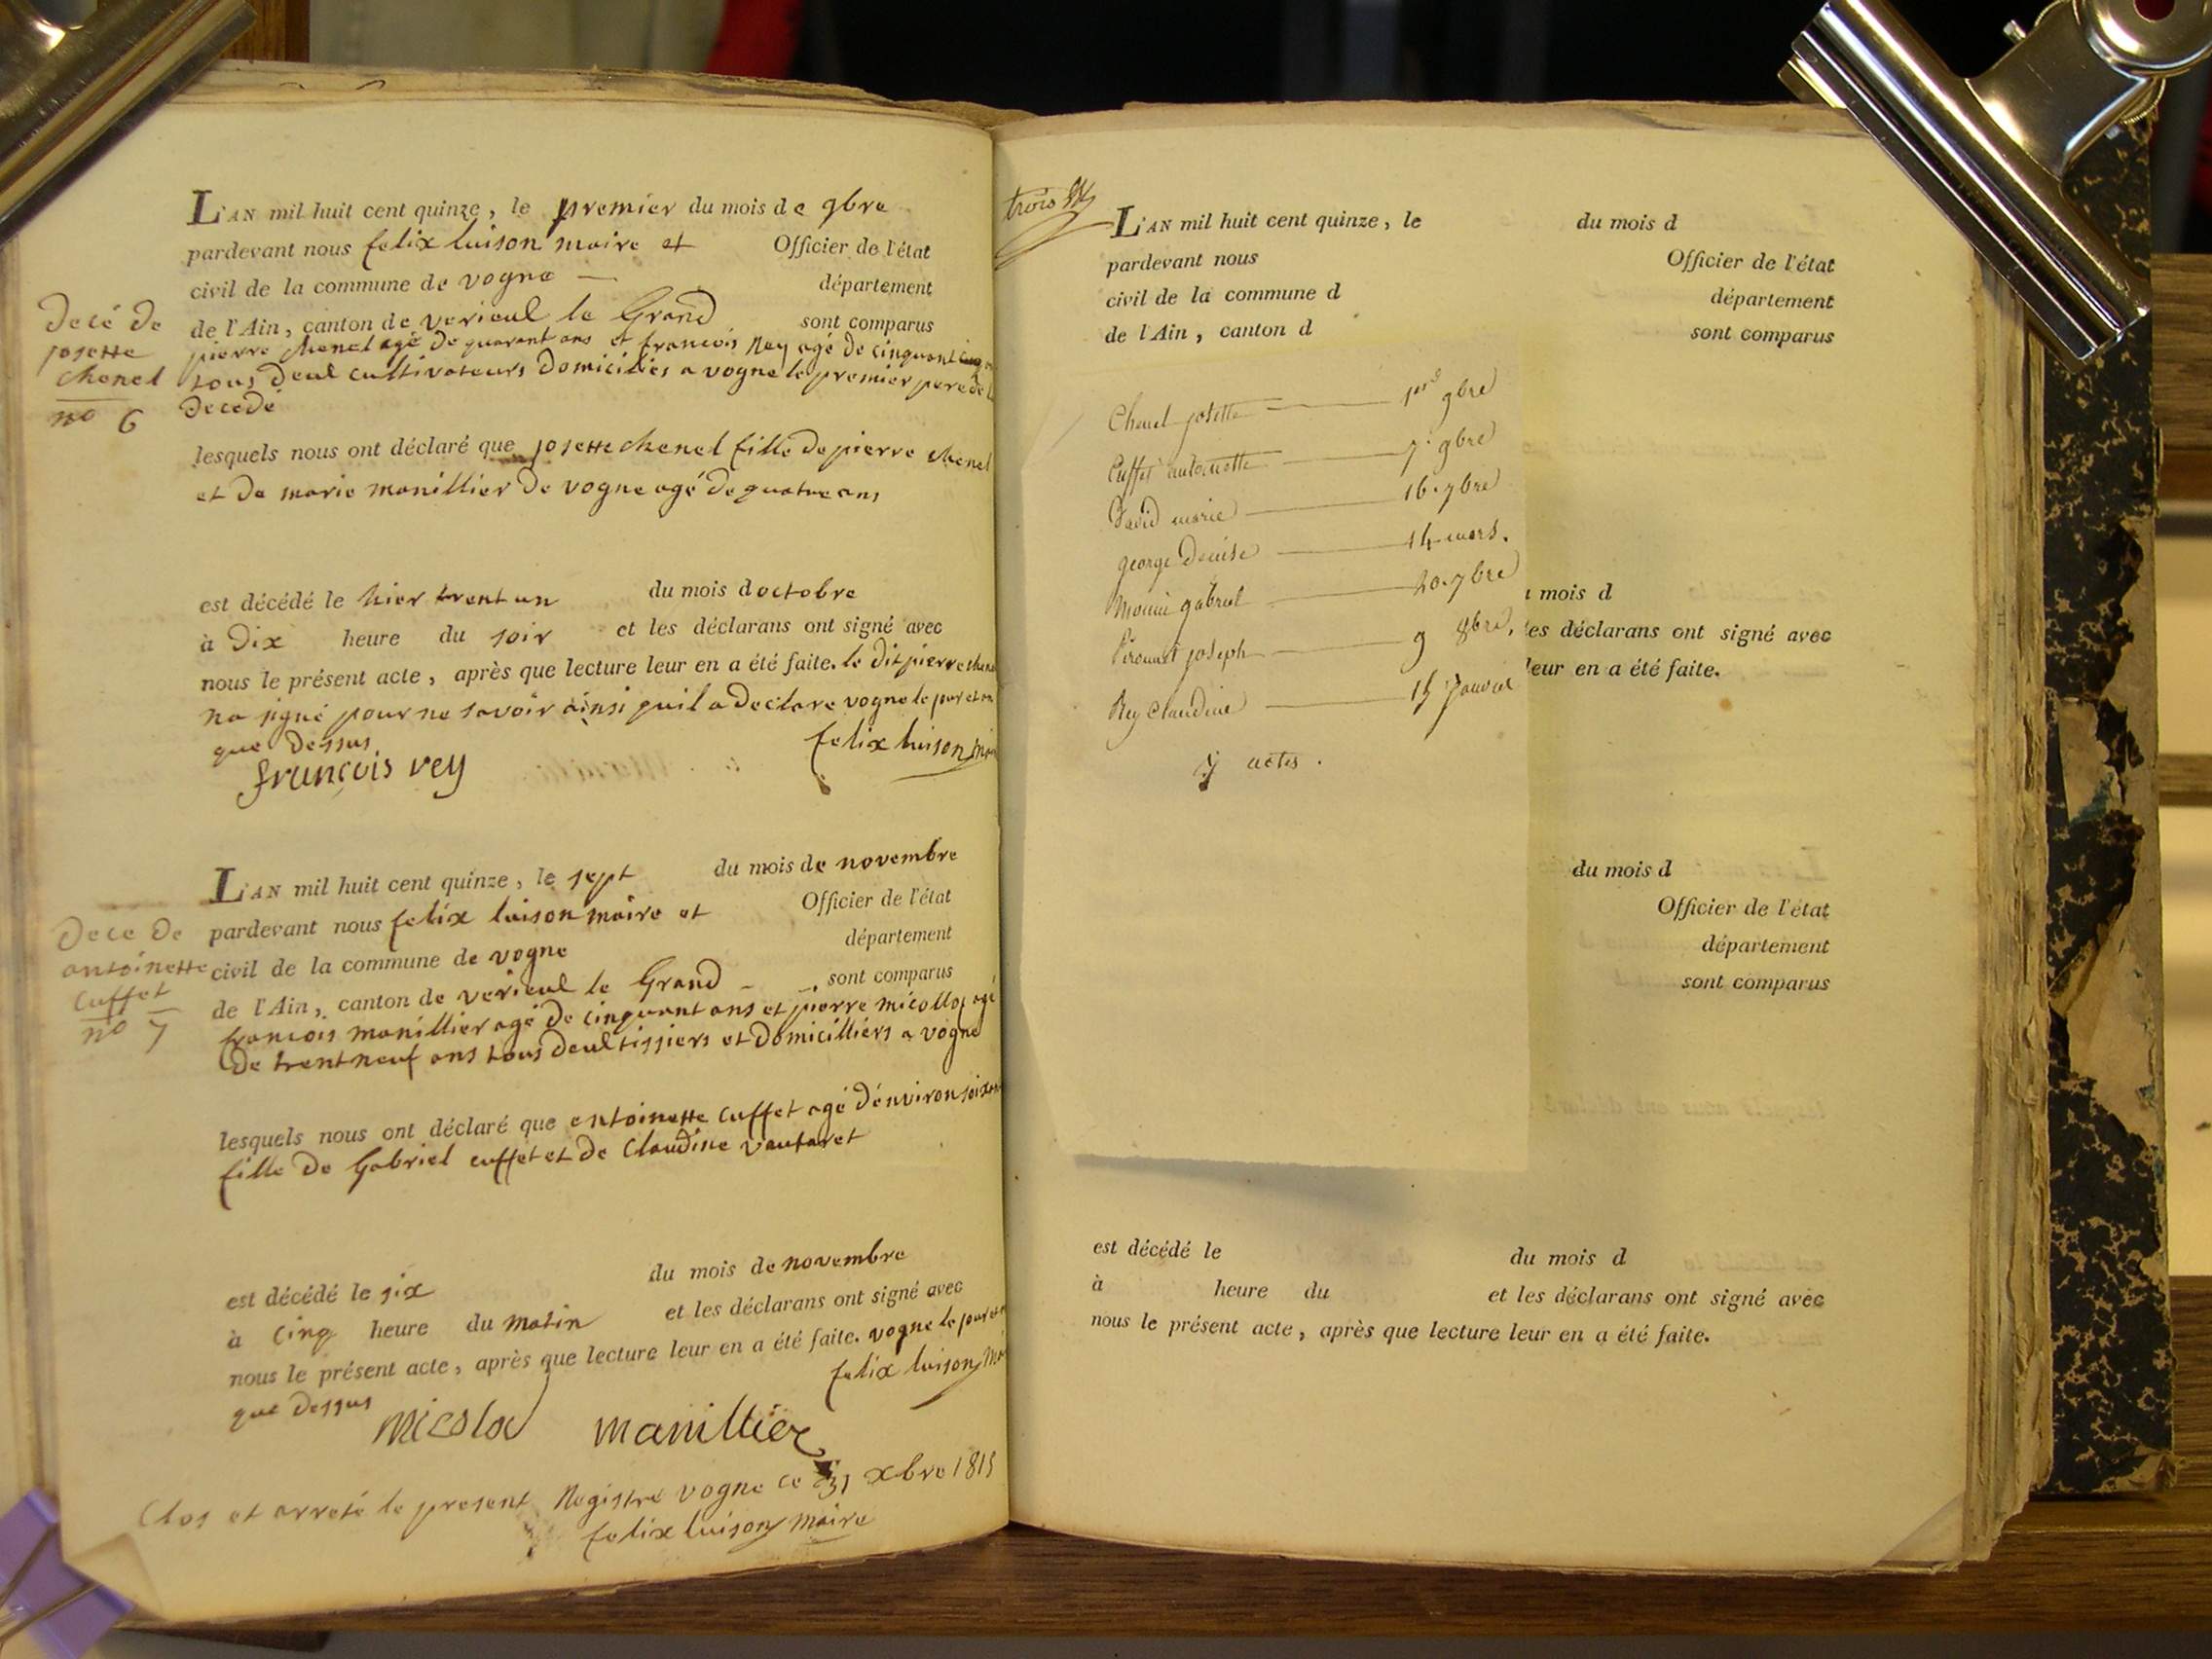 L'AN mil huit cent quinze, le premier du mois de 9bre
pardevant nous felix luison maire et Officier de l'état
civil de la commune de vogne — département
de l'Ain, canton de verieul le Grand sont comparus
pierre chenel agé de quarant ans et francois Rey agé de cinquant cinq
tous deul cultivateurs Domiciliés a vogne le premier pere de la
Decedé
Decé de
josette
chenel
no 6
lesquels nous ont déclaré que josette chenel fille de pierre chenel
et de marie manillier de vogne agé de quatre ans
est décédé le hier trent un du mois doctobre
à Dix heure du soir et les déclarans ont signé avec
nous le présent acte, après que lecture leur en a été faite. le dit pierre chenel
na signé pour ne savoir ainsi quil a declare vogne le jour et an
que Dessus
françois rey felix luison
L'AN mil huit cent quinze, le sept du mois de novembre
pardevant nous felix luison maire et Officier de l'état
civil de la commune de vogne département
de l'Ain, canton de verieul le Grand - sont comparus
francois manillier agé de cinquant ans et pierre micollod agé
De trent neuf ans tous deul tissiers et domicilliers a vogne
Dece De
antoinette
Cuffet
no 7
lesquels nous ont déclaré que antoinette Cuffet agé d'environ
fille de Gabriel cuffet et de Claudine vautaret
est décédé le six du mois de novembre
à cinq heure du matin et les déclarans ont signé avec
nous le présent acte, après que lecture leur en a été faite. vogne le jour et
que Dessus felix luison
micolod manillier
Clos et arreté le present Registre vogne ce 31 xbre 1815
felix luison maire
trois
L'AN mil huit cent quinze, le du mois d
pardevant nous Officier de l'état
civil de la commune d département
de l'Ain, canton d sont comparus
Chenel josette — 1er 9bre
Cuffet antoinette — 7. 9bre
David marie — 16. 7bre
george Denise — 14 mars.
Monin gabriel — 20. 7bre
joseph — 9 8bre.
Rey Claudine — 15 Janvier
7 actes.
mois d
les déclarans ont signé avec
leur en a été faite.
du mois d
Officier de l'état
département
sont comparus
est décédé le du mois d
à heure du et les déclarans ont signé avec
nous le présent acte, après que lecture leur en a été faite.